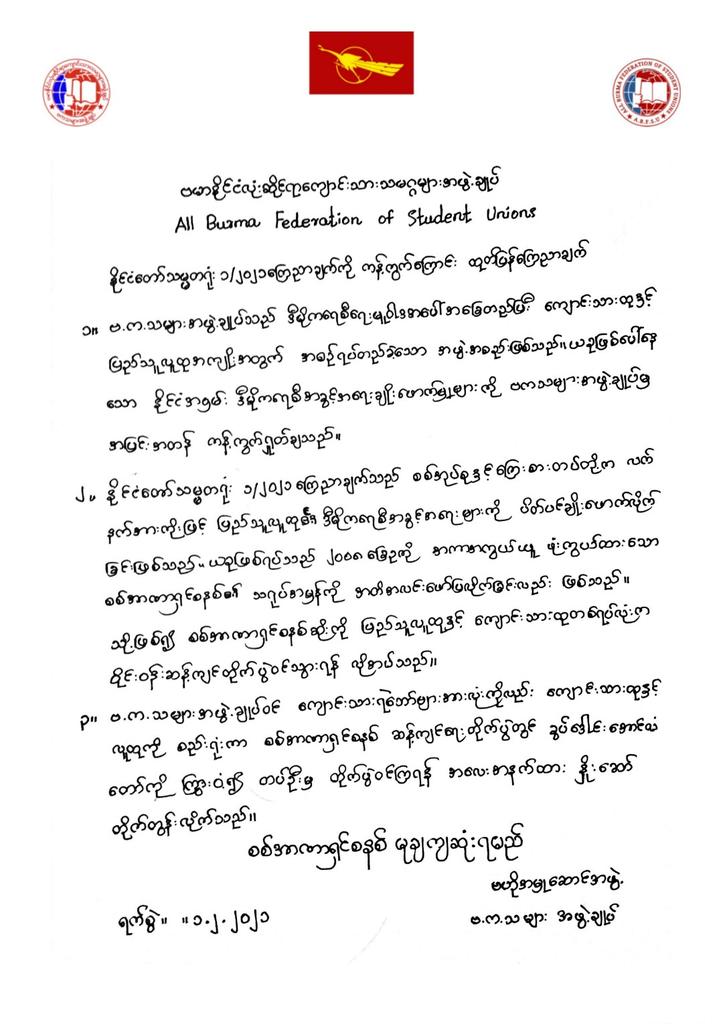 ဗမာနိုင်ငံလုံးဆိုင်ရာကျောင်းသားသမဂ္ဂများအဖွဲ့ချုပ်
All Burma Federation of Student Unions
နိုင်ငံတော်သမ္မတရုံး ၁/၂၀၂၁ကြေညာချက်ကို ကန့်ကွက်ကြောင်း ထုတ်ပြန်ကြေညာချက်
၁။ ဗ.က.သများအဖွဲ့ချုပ်သည် ဒီမိုကရေစီရေးမူဝါဒအပေါ်အခြေတည်ပြီး ကျောင်းသားထုနှင့်
ပြည်သူလူထုအကျိုးအတွက် အစဉ်ရပ်တည်ခဲ့သော အဖွဲ့အစည်းဖြစ်သည်။ ယခုဖြစ်ပေါ်နေ
သော နိုင်ငံအာဏာ ဒီမိုကရေစီအခွင့်အရေးချိုးဖောက်မှုများကို ဗကသများအဖွဲ့ချုပ်မှ
အပြင်းအထန် ကန့်ကွက်ရှုတ်ချသည်။
၂။ နိုင်ငံတော်သမ္မတရုံး ၁/၂၀၂၁ ကြေညာချက်သည် စစ်အုပ်စုနှင့်ကြေးစားတပ်တို့က လက်
နက်အားကိုးဖြင့် ပြည်သူလူထု၏ ဒီမိုကရေစီအခွင့်အရေးများကို ပိတ်ပင်ချိုးဖောက်လိုက်
ခြင်းဖြစ်သည်။ ယခုဖြစ်ရပ်သည် ၂၀၀၈ ခြေဥကို အကာအကွယ်ယူ ဖုံးကွယ်ထားသော
စစ်အာဏာရှင်စနစ်၏ သရုပ်အမှန်ကို အတိအလင်းဖော်ပြလိုက်ခြင်းလည်း ဖြစ်သည်။
သို့ဖြစ်၍ စစ်အာဏာရှင်စနစ်ဆိုးကို ပြည်သူလူထုနှင့် ကျောင်းသားထုတစ်ရပ်လုံးက
ဝိုင်းဝန်းဆန့်ကျင်တိုက်ပွဲဝင်သွားရန် လိုအပ်သည်။
၃။ ဗ.က.သများအဖွဲ့ချုပ်ဝင် ကျောင်းသားရဲဘော်များအားလုံးကိုလည်း ကျောင်းသားထုနှင့်
လူထုကို စည်းရုံးကာ စစ်အာဏာရှင်စနစ် ဆန့်ကျင်ရေးတိုက်ပွဲတွင် ခွပ်ဒေါင်းအောင်လံ
တော်ကို ကြွားဝံ့၍ တပ်ဦးမှ တိုက်ပွဲဝင်ကြရန် အလေးအနက်ထား နှိုးဆော်
တိုက်တွန်းလိုက်သည်။
စစ်အာဏာရှင်စနစ် မုချကျဆုံးရမည်
ဗဟိုအမှုဆောင်အဖွဲ့
ရက်စွဲ။ ။၁.၂.၂၀၂၁
ဗ.က.သများ အဖွဲ့ချုပ်
ALL BURMA FEDERATION OF STUDENT UNIONS
A.B.F.S.U